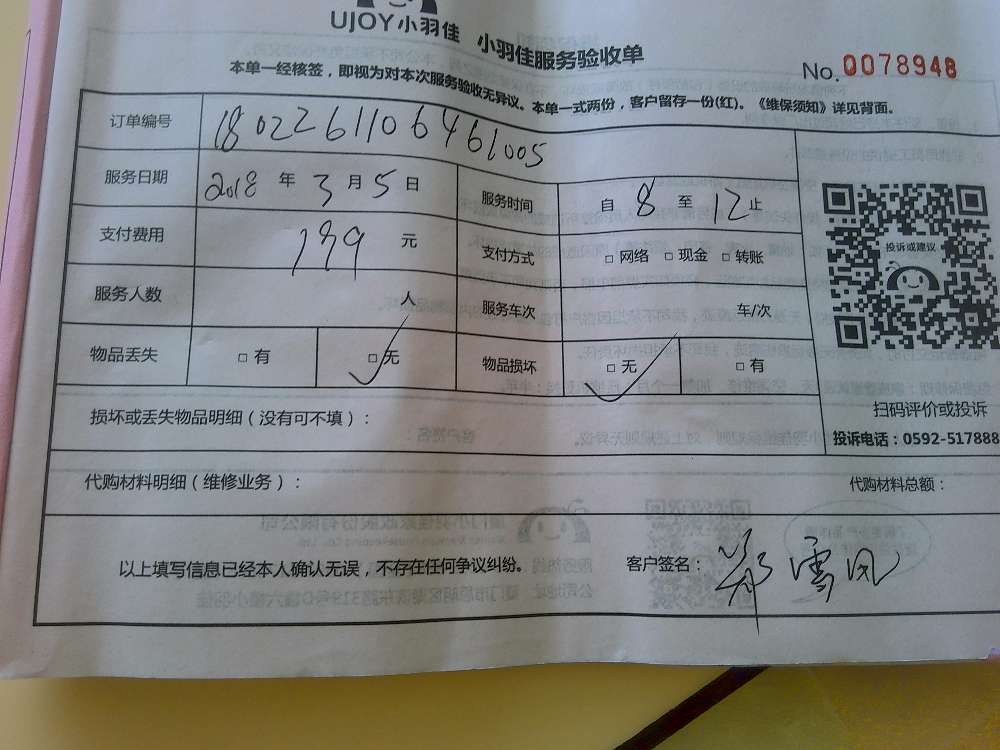 UJOY小羽佳 小羽佳服务验收单
No.0078948
本单一经核签，即视为对本次服务验收无异议。本单一式两份，客户留存一份(红)。《维保须知》详见背面。
订单编号 180226110646 1005
服务日期 2018 年 3 月 5 日 服务时间 自 8 至 12 止
支付费用 139 元 支付方式 □ 网络 □ 现金 □ 转账
服务人数 人 服务车次 车/次
物品丢失 □ 有 □ 无 物品损坏 □ 无 □ 有
投诉或建议
扫码评价或投诉
投诉电话：0592-517888
损坏或丢失物品明细（没有可不填）：
代购材料明细（维修业务）： 代购材料总额：
以上填写信息已经本人确认无误，不存在任何争议纠纷。 客户签名：郑雪凤